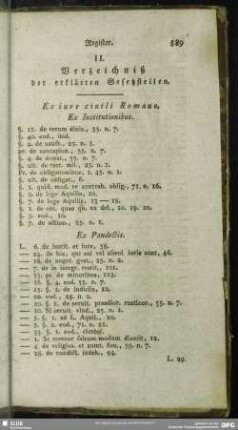 Register. 589
II.
Verzeichniß
der erklärten Gesetzstellen.
Ex iure ciuili Romano,
Ex Institutionibus.
§. 11. de rerum diuis., 55. n. 7.
§. 40. eod., ibid.
§. 2. de usufr., 25. n. 2.
pr. de usucapion., 55. n. 7.
§. 4. de donat., 55. n. 7.
§. ult. de test. mil., 25. n. 2.
Pr. de obligationibus,
§. ult. de obligat., 6.
§. 2. quib. mod. re contrah. oblig., 71. n. 26.
§. 9. de lege Aquilia, 20.
§. 7. de lege Aquilia, 13 — 15.
§. 1. de obl. quae qu. ex del., 10. 19. 20.
§. 3. eod., 10.
§. 7. de action., 25. n. 2.
Ex Pandectis.
L. 6. de iustit. et iure, 58.
— 24. de his, qui sui vel alieni iuris sunt, 46.
— 16. de negot. gest., 25. n. 2.
— 7. de in integr. restit., 101.
— 17. pr. de minoribus, 123.
— 16. §. 4. eod. 55. n. 7.
— 15. §. 1. de iudiciis, 12.
— 20. eod., 25. n. 2.
— 20. §. 1. de seruit. praedior. rusticor., 55. n. 7.
— 10. Si seruit. vind., 25. n. 2.
— 5. §. 1. ad L. Aquil., 10.
— 5. §. 2. eod., 71. n. 26.
— 23. §. 1. eod.,
— 1. Si mensor falsum modum dixerit, 12.
— 4. de religios. et sumt. fun., 55. n. 7.
— 25. de condict. indeb., 94.
L. 29.